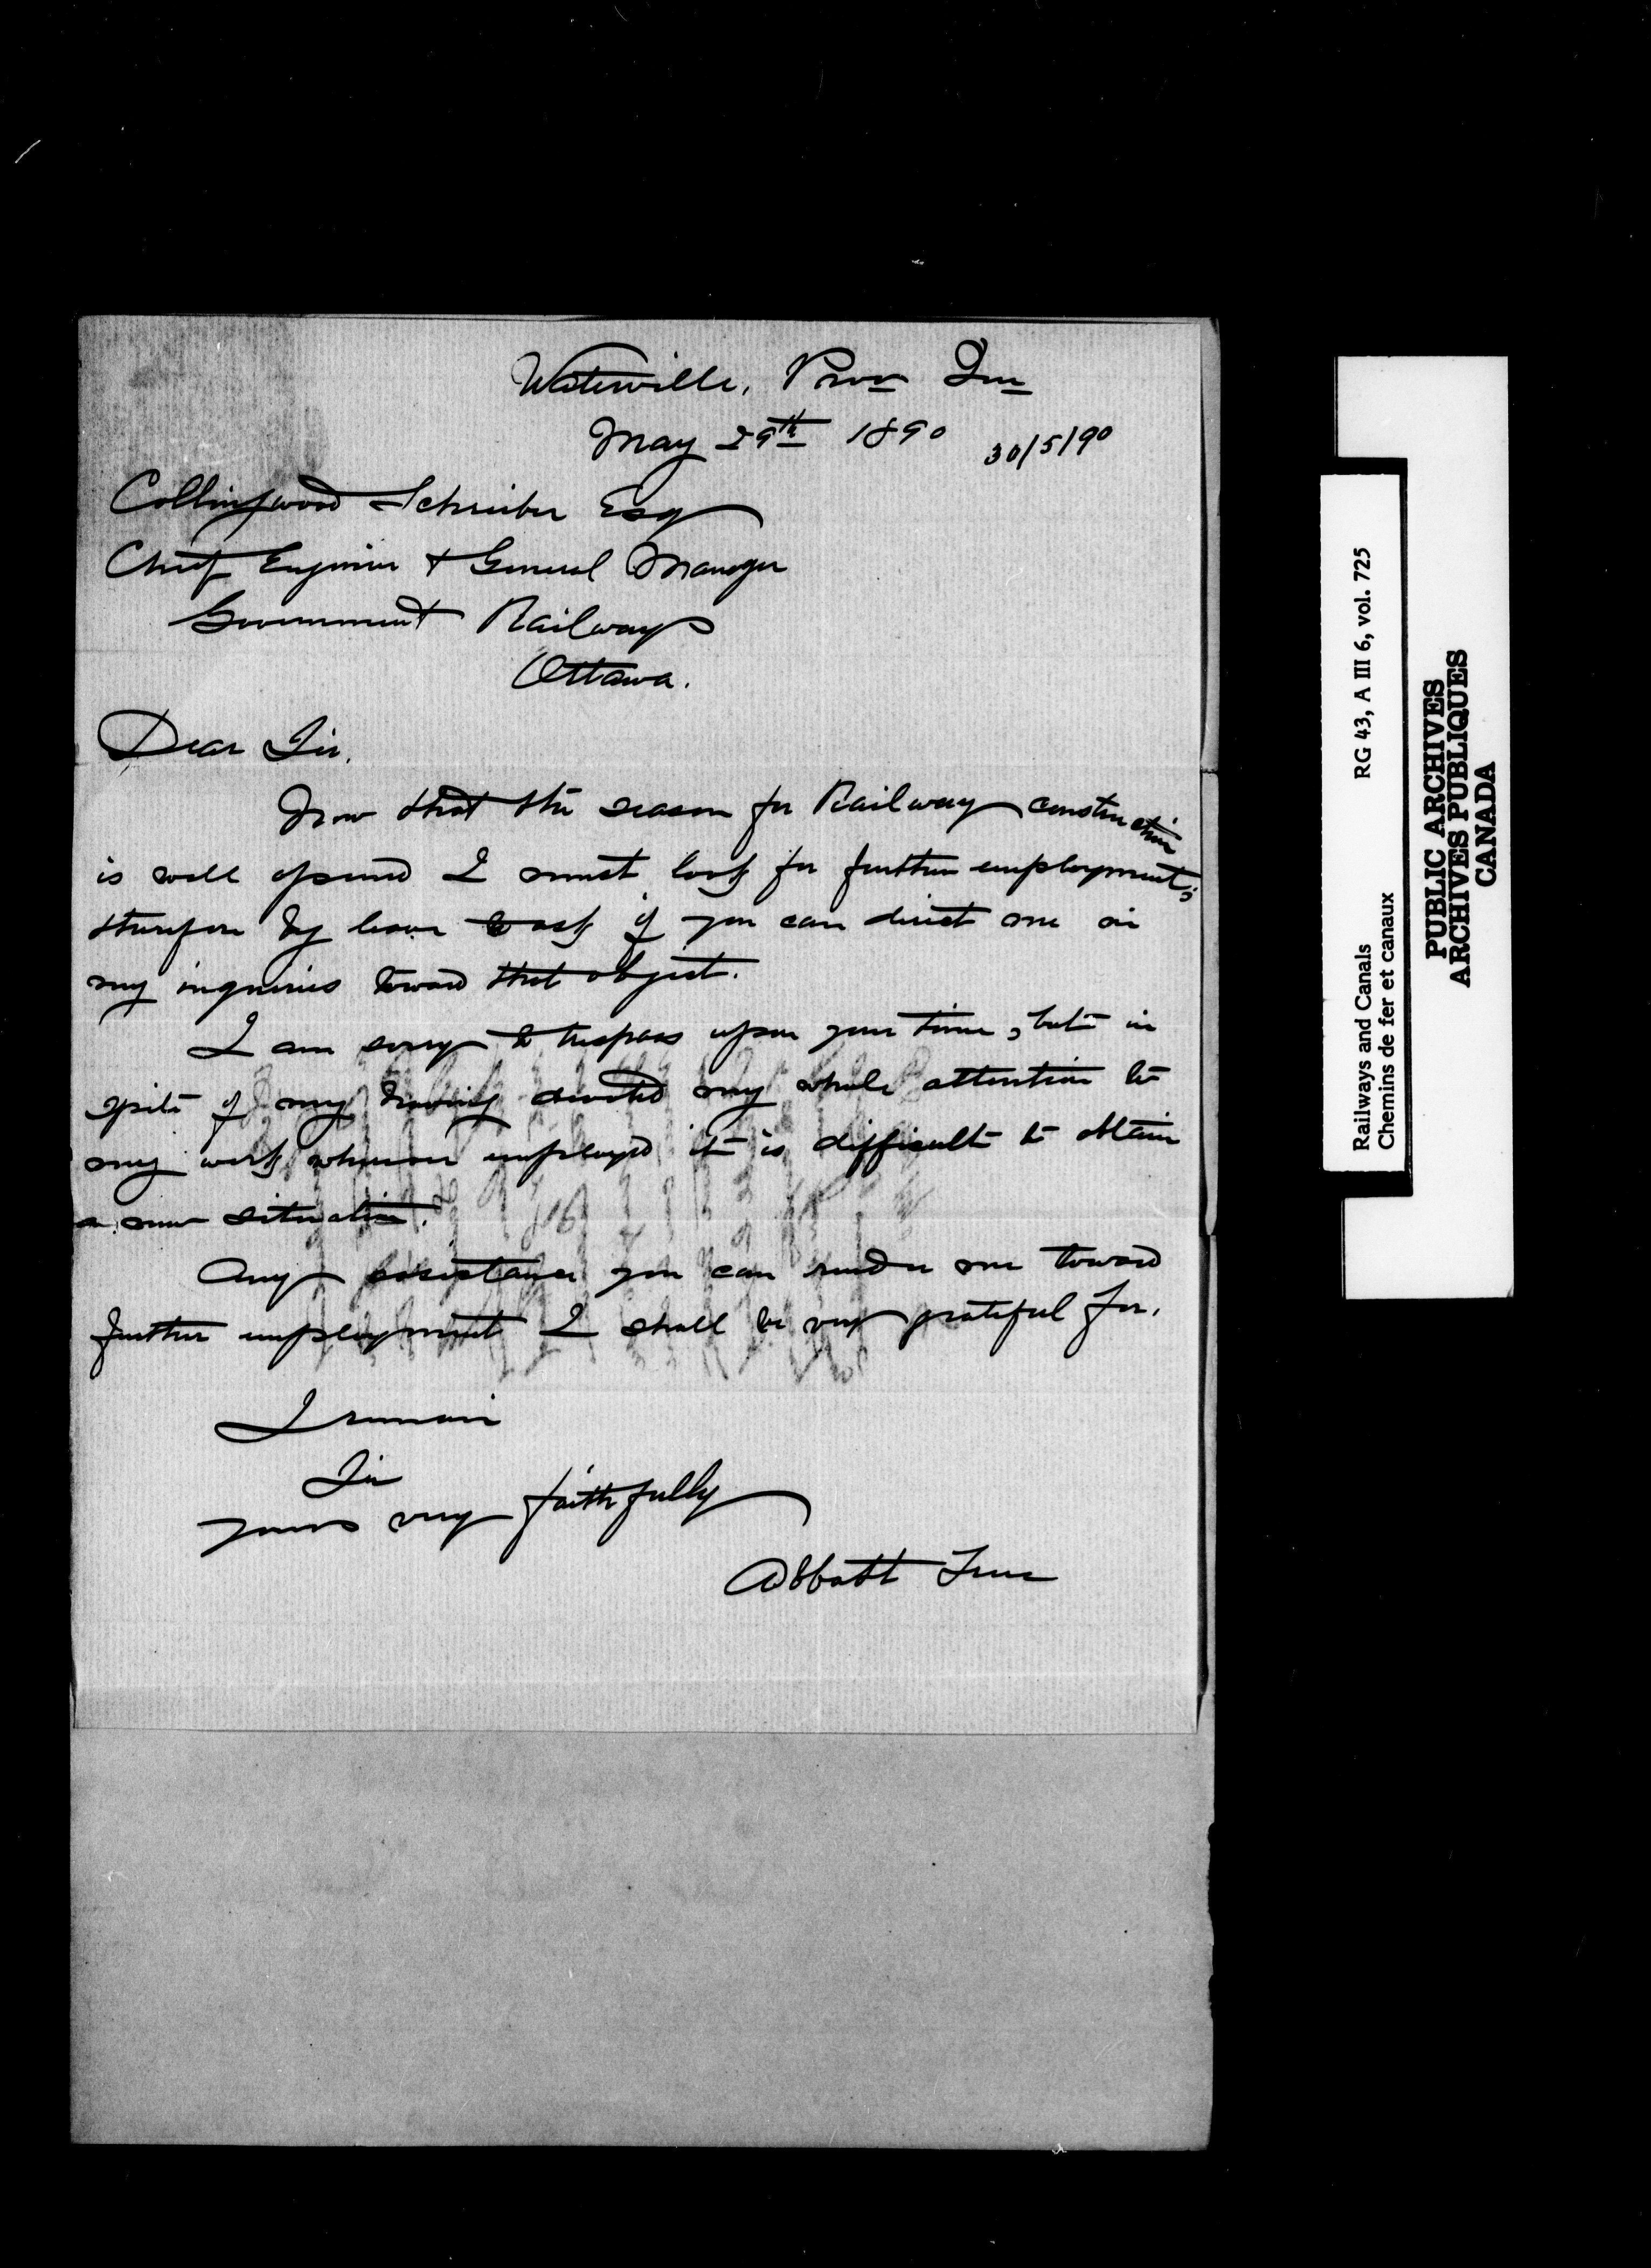 Waterville, Prov Que
May 29th 1890 30/5/90
Collingwood Schreiber Esq
Chief Engineer + General Manager
Government Railways
Ottawa.
Dear Sir,
Now that the season for Railway construction
is well opened I must look for further employment;
therefore beg leave to ask if you can direct me in
my inquiries toward that object.
I am sorry to trespass upon your time, but in
spite of my having devoted my whole attention to
my work whenever employed it is difficult to obtain
a new situation.
Any assistance you can render me toward
further employment I shall be very grateful for.
I remain
Sir
yours very faithfully
Abbott
Railways and Canals RG 43, A III 6, vol. 725
Chemins de fer et canaux
PUBLIC ARCHIVES
ARCHIVES PUBLIQUES
CANADA